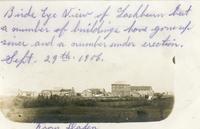 Birds Eye View of Lashburn but
a number of buildings have gone up
since and a number under erection.
Sept. 29th. 1906.